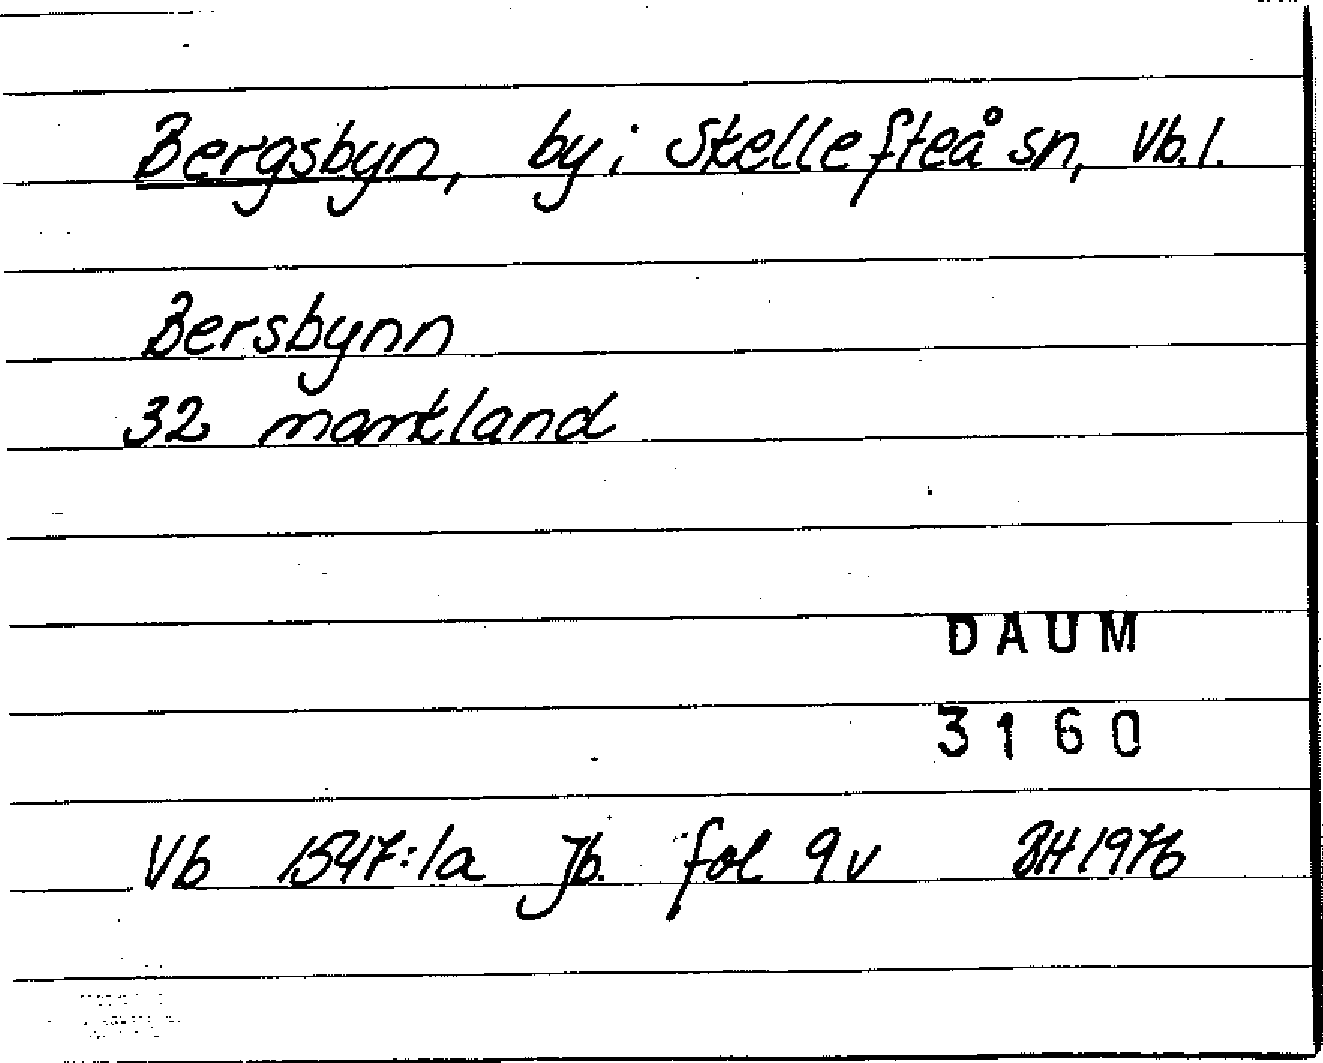 Bergsbyn, by i Skellefteå sn, Vb.l.
Bersbynn
32 markland
DAUM
3160
Vb 1547:1a Jb. fol 9v BH 1976